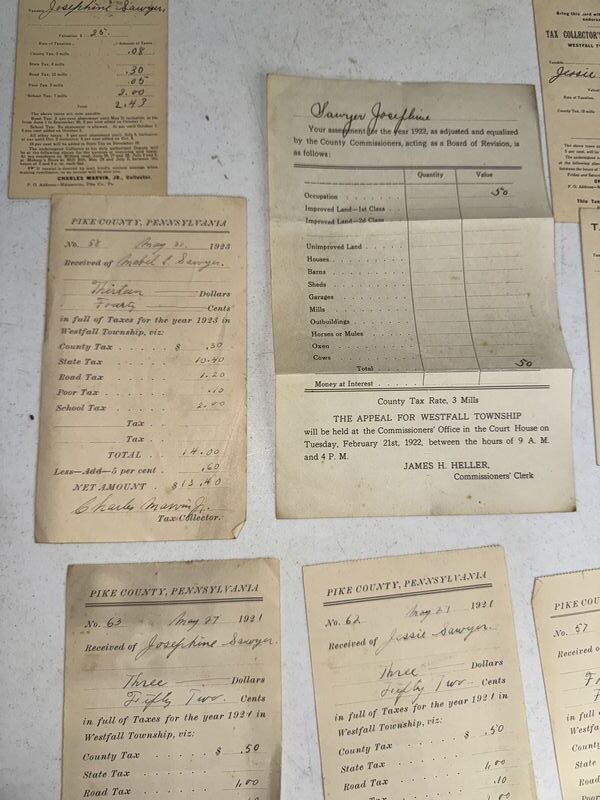 Josephine Sawyer
Valuation $ 25.
Rate of Taxation. Amount of Taxes
.08
State Tax, 4 mills
Road Tax, 12 mills .30
Poor Tax, 2 mills .05
School Tax, 7 mills 2.00
Total 2.43
The above taxes are now payable.
CHARLES MARVIN, JR., Collector.
P. O. Address—Matamoras, Pike Co., Pa.
PIKE COUNTY, PENNSYLVANIA
No. 58 May 21, 1923
Received of Mabel S. Sawyer.
Thirteen Dollars
Fourty Cents
in full of Taxes for the year 1923 in
Westfall Township, viz:
County Tax . . . . . . $ .30
State Tax . . . . . . 10.40
Road Tax . . . . . . 1.20
Poor Tax . . . . . . .10
School Tax . . . . . . 2.00
Tax . .
Tax . .
TOTAL . . 14.00
Less—Add—5 per cent . .60
NET AMOUNT . $13.40
Charles Marvin Jr.
Tax-Collector.
Sawyer Josephine
Your assessment for the year 1922, as adjusted and equalized
by the County Commissioners, acting as a Board of Revision, is
as follows:
Quantity Value
Occupation 50
Improved Land—1st Class
Improved Land—2d Class
Unimproved Land
Houses
Barns
Sheds
Garages
Mills
Outbuildings
Horses or Mules
Oxen
Cows
Total 50
Money at Interest
County Tax Rate, 3 Mills
THE APPEAL FOR WESTFALL TOWNSHIP
will be held at the Commissioners' Office in the Court House on
Tuesday, February 21st, 1922, between the hours of 9 A. M.
and 4 P. M.
JAMES H. HELLER,
Commissioners' Clerk
Bring this
TAX COLLECTOR'S
WESTFALL T
Jessie
PIKE COUNTY, PENNSYLVANIA
No. 63 May 27 1921
Received of Josephine Sawyer.
Three Dollars
Fifty Two. Cents
in full of Taxes for the year 1921 in
Westfall Township, viz:
County Tax . . . . . . $ .50
State Tax . . . . . .
Road Tax . . . . . . 1,00
PIKE COUNTY, PENNSYLVANIA
No. 62 May 27 1921
Received of Jessie Sawyer.
Three Dollars
Fifty Two Cents
in full of Taxes for the year 1921 in
Westfall Township, viz:
County Tax . . . . . . $ .50
State Tax . . . . . . 1,00
Road Tax . . . . . . .10
PIKE COU
No. 57
Received o
in full
Westfa
County
State
Road
Poor